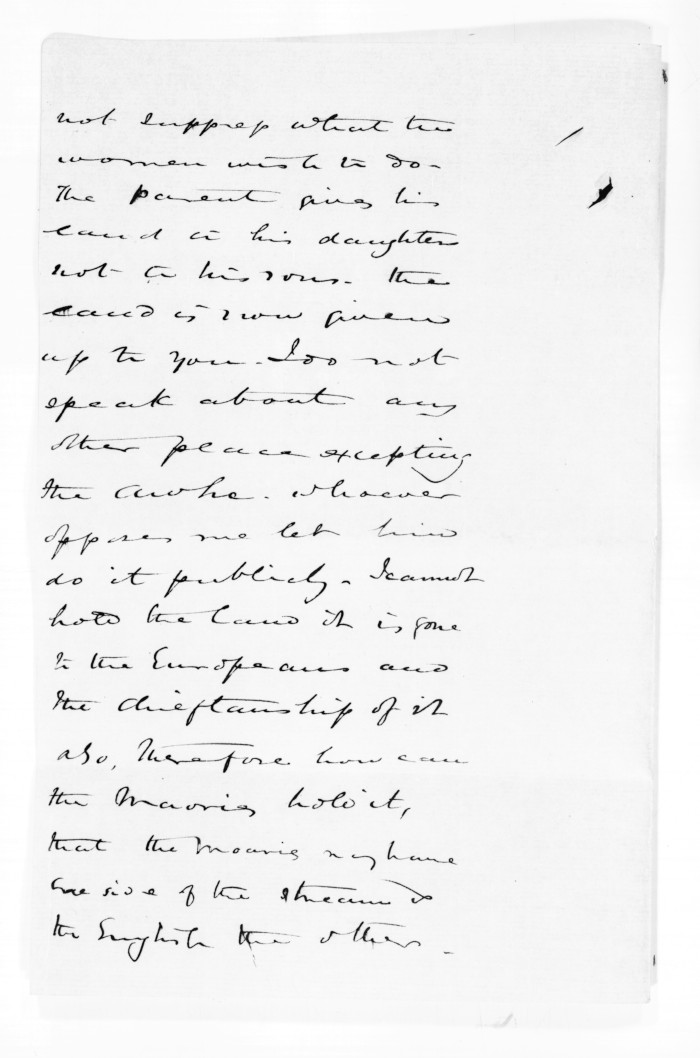 not suppress what the
women wish to do -
The parent gives his
land to his daughters
not to his sons - the
land is now given
up to you - I do not
speak about any
other place excepting
the awhe - whoever
opposes me let him
do it publicly - I cannot
hold the land it is gone
to the Europeans and
the chieftanship of it
also, therefore how can
the Maories hold it,
that the Maories may have
one side of the stream &
the English the others -